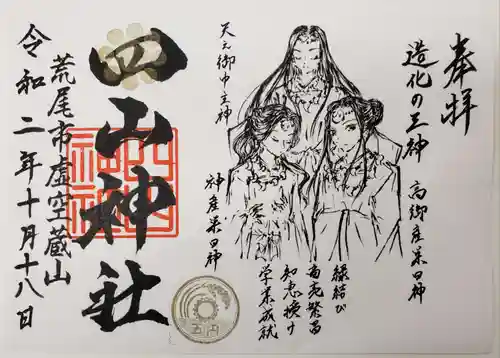 奉拝
造化の三神
高御産巣日神
天之御中主神
神産巣日神
縁結び
商売繁昌
知恵授け
学業成就
五円
四山神社
荒尾市虚空蔵山
令和二年十月十八日